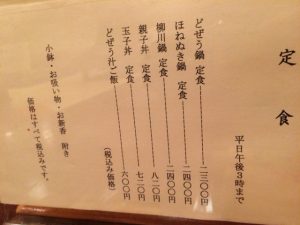 定食
平日午後3時まで
どぜう鍋 定食 二三〇〇円
ほねぬき鍋 定食 二四〇〇円
柳川鍋 定食 二四〇〇円
親子丼 定食 八二〇円
玉子丼 定食 七二〇円
どぜう汁ご飯 六〇〇円
（税込み価格）
小鉢・お吸い物・お新香 附き
価格はすべて税込みです。